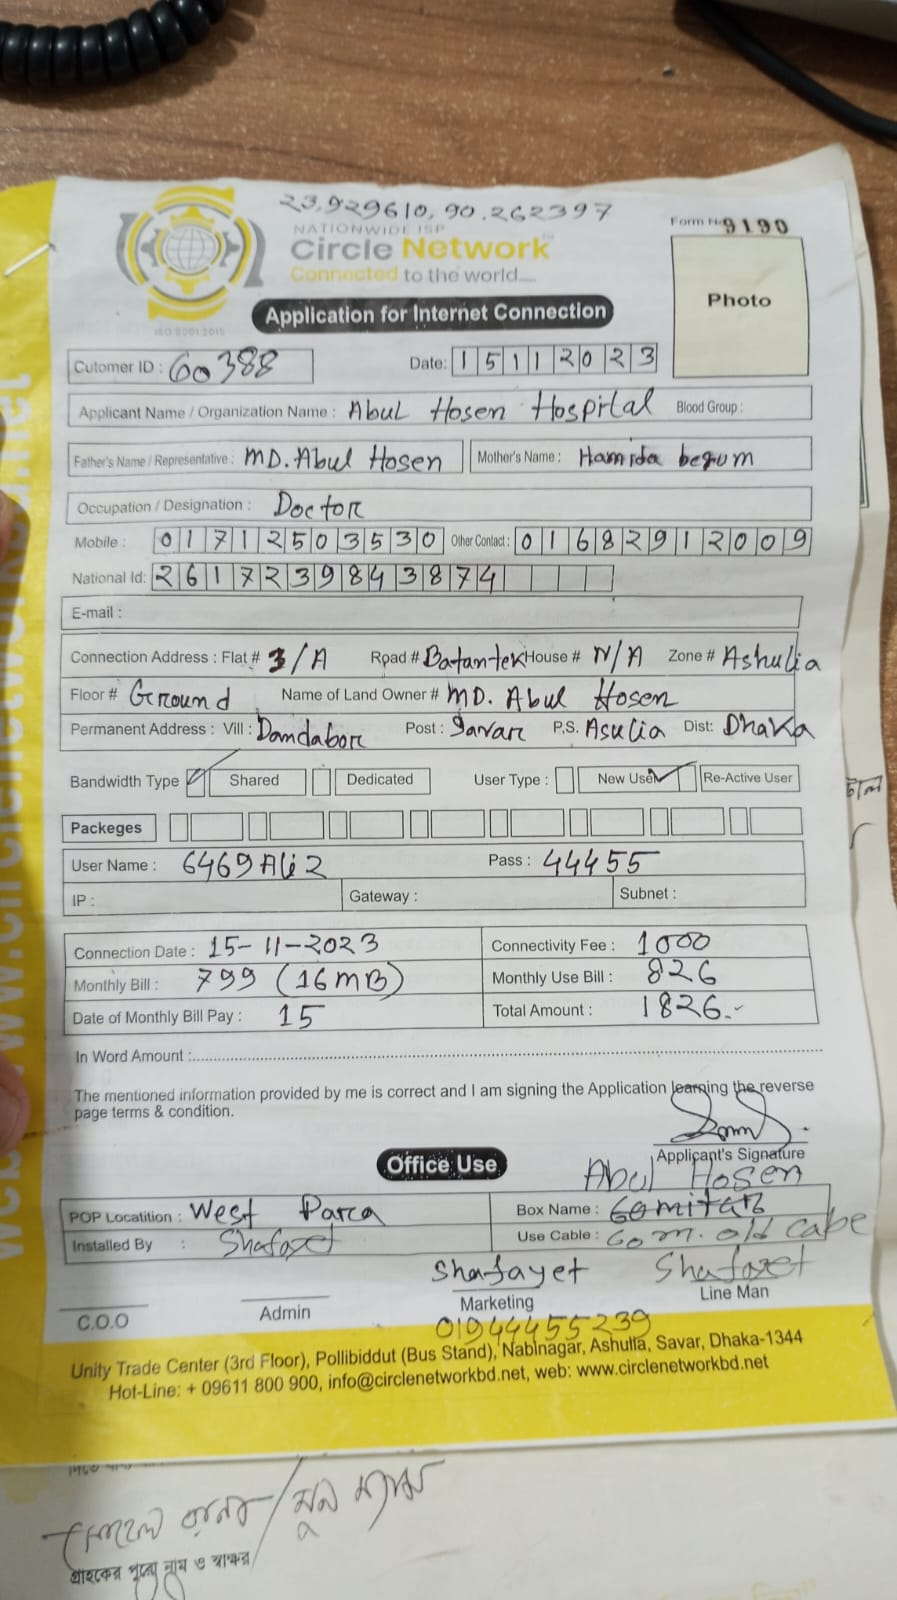 23.929610, 90.262397
NATIONWIDE ISP
Circle Network
Connected to the world.....
ISO 9001:2015
Form No 9190
Photo
Application for Internet Connection
Cutomer ID : 60388 Date: 15112023
Applicant Name / Organization Name : Abul Hosen Hospital Blood Group :
Father's Name / Representative : MD. Abul Hosen Mother's Name : Hamida begum
Occupation / Designation : Doctor
Mobile : 01712503530 Other Contact : 01682912009
National Id: 2617239843874
E-mail :
Connection Address : Flat # 3/A Road # Batantek House # N/A Zone # Ashulia
Floor # Ground Name of Land Owner # MD. Abul Hosen
Permanent Address : Vill : Dandabor Post : Savar P.S. Asulia Dist: Dhaka
Bandwidth Type Shared Dedicated User Type : New User Re-Active User
Packeges
User Name : 6469Ali2 Pass : 44455
IP : Gateway : Subnet :
Connection Date : 15-11-2023 Connectivity Fee : 1000
Monthly Bill : 799 (16MB) Monthly Use Bill : 826
Date of Monthly Bill Pay : 15 Total Amount : 1826.-
In Word Amount :
The mentioned information provided by me is correct and I am signing the Application learning the reverse
page terms & condition.
Applicant's Signature
Abul Hosen
Office Use
POP Locatition : West Para Box Name : Gomitar
Installed By : Shafayet Use Cable : 60 m. old cabe
Shafayet Shafayet
C.O.O Admin Marketing Line Man
01944455239
Unity Trade Center (3rd Floor), Pollibiddut (Bus Stand), Nabinagar, Ashulia, Savar, Dhaka-1344
Hot-Line: + 09611 800 900, info@circlenetworkbd.net, web: www.circlenetworkbd.net
গ্রাহকের পুরো নাম ও স্বাক্ষর